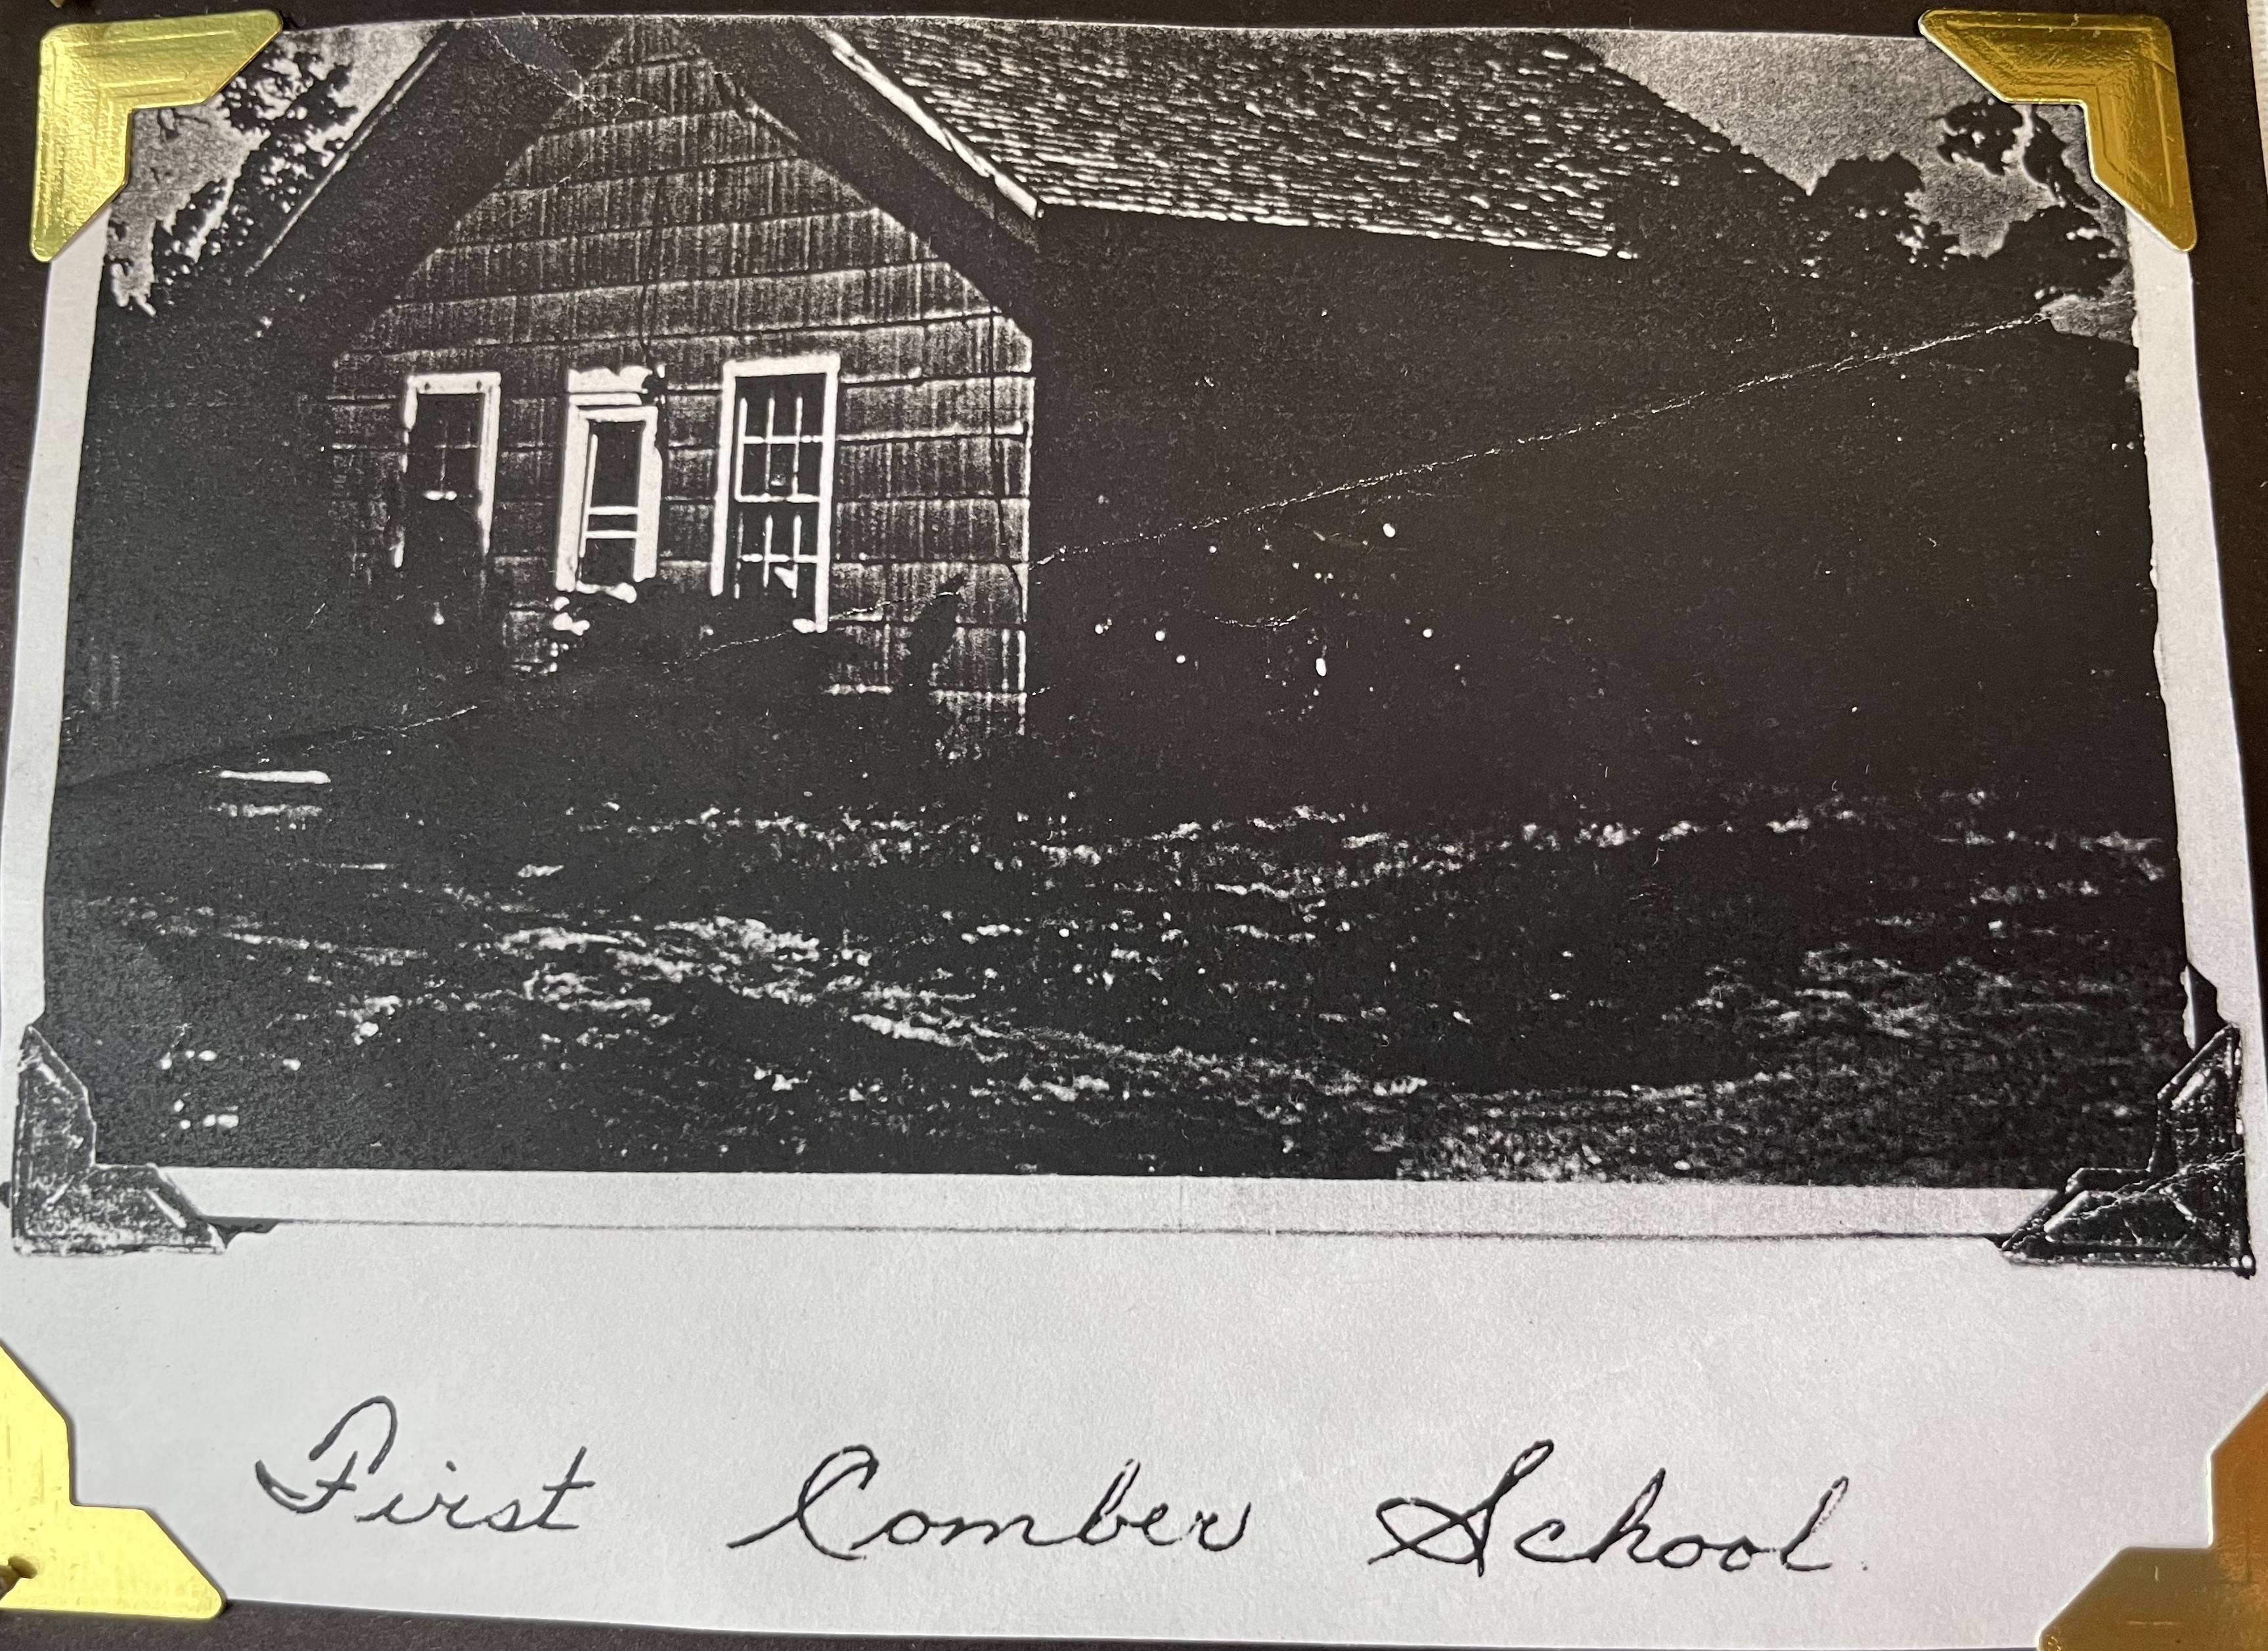 First Comber School